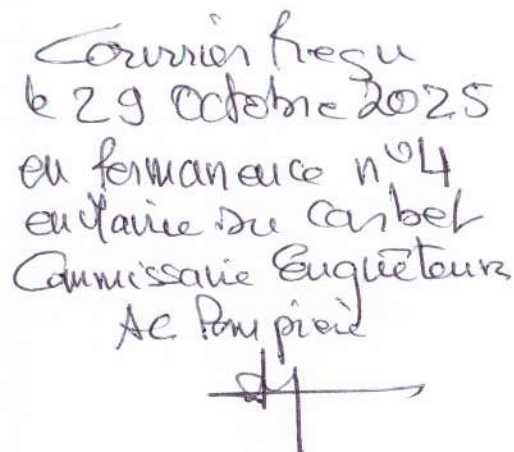 Courrier Reçu
le 29 Octobre 2025
en permanence n°4
en Mairie du Carbet
Commissaire Enquêteur
AC Pompière